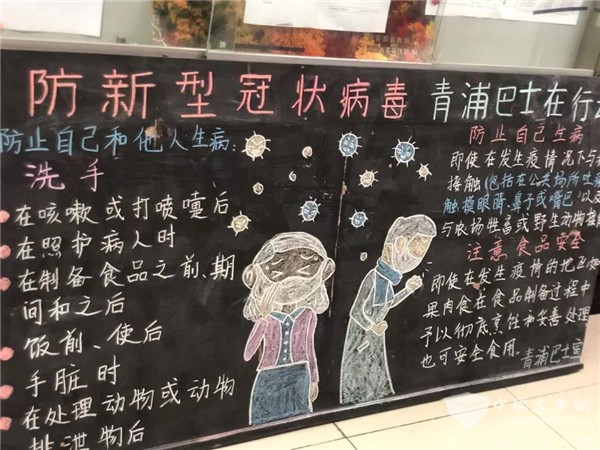 防新型冠状病毒 青浦巴士在行
防止自己和他人生病:
洗手
在咳嗽或打喷嚏后
在照护病人时
在制备食品之前、期
间和之后
饭前、便后
手脏时
在处理动物或动物
排泄物后
防止自己生病
即使在发生疫情况下与
接触(包括在公共场所吐
触摸眼睛、鼻子或嘴巴以
与农场牲畜或野生动物
注意食品安全
即使在发生疫情的地
果肉食在食品制备过程中
予以彻底烹饪和妥善处理
也可安全食用.
青浦巴士